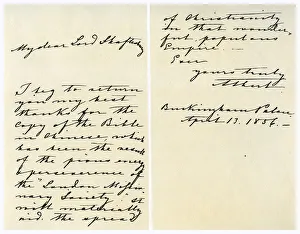 My dear Lord Shaftesby
I beg to return
you my best
thanks for the
Copy of the Bible
in Chinese, which
has been the result
of the pious energy
& perseverance of
the "London Missio-
nary Society". It
will materially
aid the spread
of Christianity
in that wonder-
ful populous
Empire. —
Ever
yours truly
Albert
Buckingham Palace
April 13. 1856.